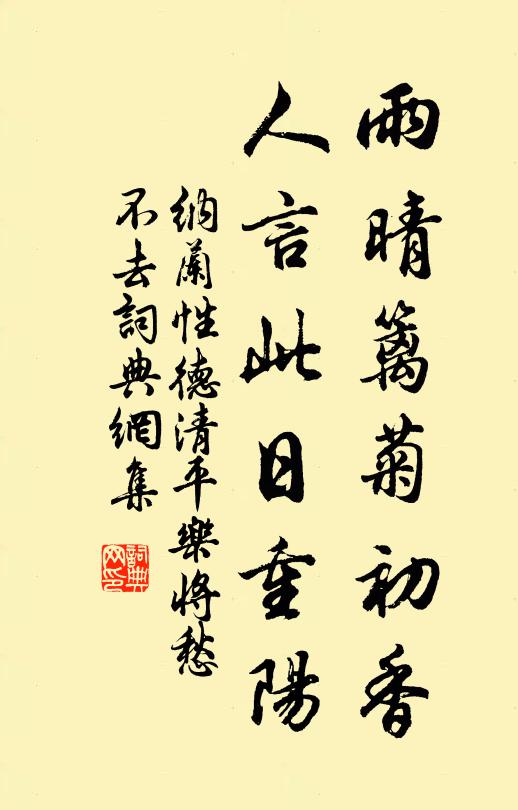 雨晴籬菊初香
人言此日重陽
納蘭性德清平樂將愁
不去詞典網集
詞典
网印